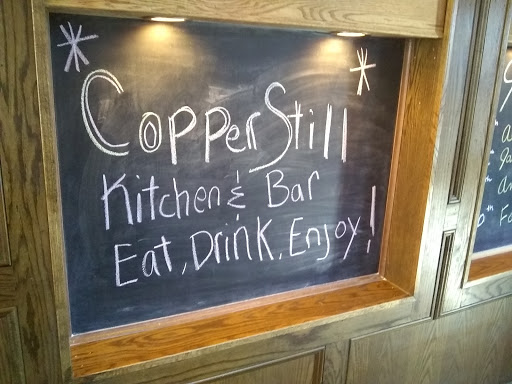 Copper Still
Kitchen & Bar
Eat, Drink, Enjoy!